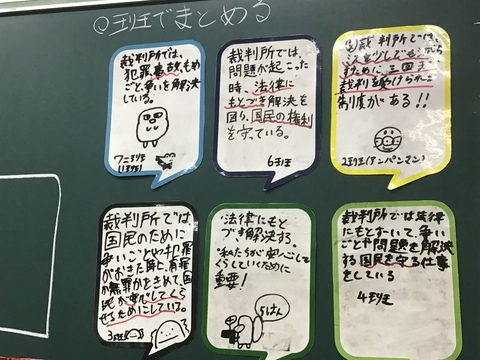 ◎班でまとめる
裁判所では、
犯罪、事故、もめ
ごと、争いを解決
している。
裁判所では、
問題が起こった
時、法律に
もとづき解決を
図り、国民の権利
を守っている。
6班
裁判所では、
ミスを少しでもへらす
ために三回まで
裁判を受けられる
制度がある!!
2班(アンパンマン)
裁判所では
国民のために
争いごとや犯罪
がおきた時に、有罪
か無罪かをきめて、国
民が安心してくら
せるためにしている。
3班
法律にもと
づき解決する。
私たちが安心して
くらしていくために
重要!
5はん
裁判所では法律
にもとずいて、争い
ごとや問題を解決
する国民を守る仕事
をしている
4班